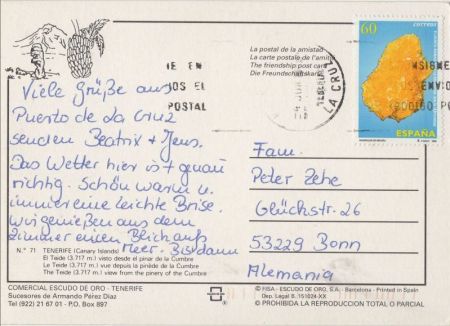 La postal de la amistad
La carte postale de l'amitié
The friendship post card
Die Freundschaftskarte
60
correos
ESPAÑA
IE EN
OS EL
POSTAL
LA CRUZ
Viele Grüße aus
Puerto de La Cruz
senden Beatrix + Jens.
Das Wetter hier ist genau
richtig. Schön warm u.
immer eine leichte Brise.
wir genießen aus dem
Zimmer einen Blick aufs
Meer. Bis dann
Fam.
Peter Zehe
Glückstr. 26
53229 Bonn
Alemania
N.º 71 TENERIFE (Canary Islands)
El Teide (3.717 m.) visto desde el pinar de la Cumbre
Le Teide (3.717 m.) vue depuis la pinède de la Cumbre
El Teide (3.717 m.) view from the pinery of the Cumbre
COMERCIAL ESCUDO DE ORO - TENERIFE
Sucesores de Armando Pérez Díaz
Tel (922) 21 67 01 - P.O. Box 897
© FISA - ESCUDO DE ORO, S.A. - Barcelona - Printed in Spain
Dep. Legal B. 151024-XX
© PROHIBIDA LA REPRODUCCION TOTAL O PARCIAL